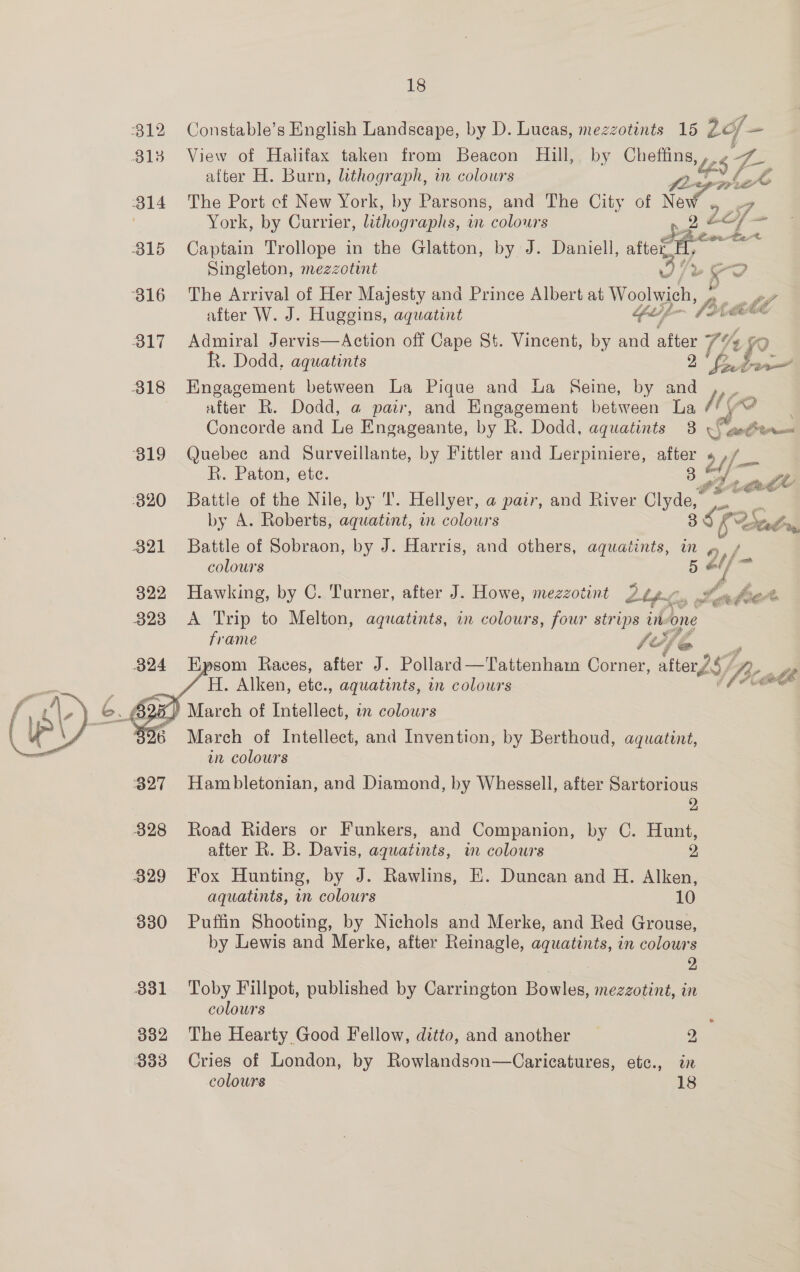 18
312 Constable's English Landscape, by D. Lucas, mezzotints 15 20/-
313 View of Halifax taken from Beacon Hill, by Cheffins,
after H. Burn, lithograph, in colours
314 The Port of New York, by Parsons, and The City of New
York, by Currier, lithographs, in colours 2
315 Captain Trollope in the Glatton, by J. Daniell, after H.
Singleton, mezzotint
316 The Arrival of Her Majesty and Prince Albert at Woolwich,
after W. J. Huggins, aquatint
317 Admiral Jervis—Action off Cape St. Vincent, by and after
R. Dodd, aquatints 2
318 Engagement between La Pique and La Seine, by and
after R. Dodd, a pair, and Engagement between La
Concorde and Le Engageante, by R. Dodd, aquatints 3
319 Quebec and Surveillante, by Fittler and Lerpiniere, after
R. Paton, etc. 3
320 Battle of the Nile, by T. Hellyer, a pair, and River Clyde,
by A. Roberts, aquatint, in colours 3
321 Battle of Sobraon, by J. Harris, and others, aquatints, in
colours 5
322 Hawking, by C. Turner, after J. Howe, mezzotint
323 A Trip to Melton, aquatints, in colours, four strips in one
frame
324 Epsom Races, after J. Pollard—Tattenham Corner, after
H. Alken, etc., aquatints, in colours
6. 325 March of Intellect, in colours
326 March of Intellect, and Invention, by Berthoud, aquatint,
in colours
327 Hambletonian, and Diamond, by Whessell, after Sartorious
2
328 Road Riders or Funkers, and Companion, by C. Hunt,
after R. B. Davis, aquatints, in colours 2
329 Fox Hunting, by J. Rawlins, E. Duncan and H. Alken,
aquatints, in colours 10
330 Puffin Shooting, by Nichols and Merke, and Red Grouse,
by Lewis and Merke, after Reinagle, aquatints, in colours
2
331 Toby Fillpot, published by Carrington Bowles, mezzotint, in
colours
332 The Hearty Good Fellow, ditto, and another 2
333 Cries of London, by Rowlandson—Caricatures, etc., in
colours 18